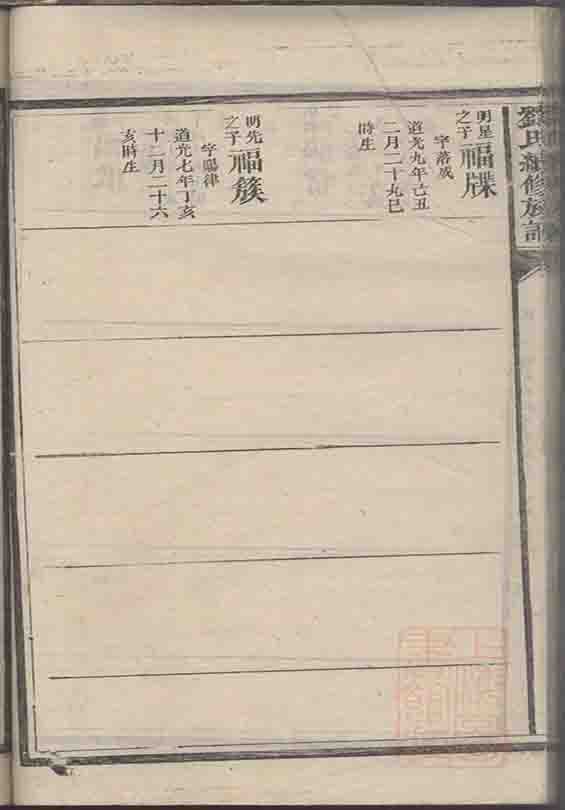 氏續修族譜
明星之子
福牒
字落成
道光九年己丑
二月二十九巳
時生
明先之子
福簇
字陽律
道光七年丁亥
十二月二十六
亥時生